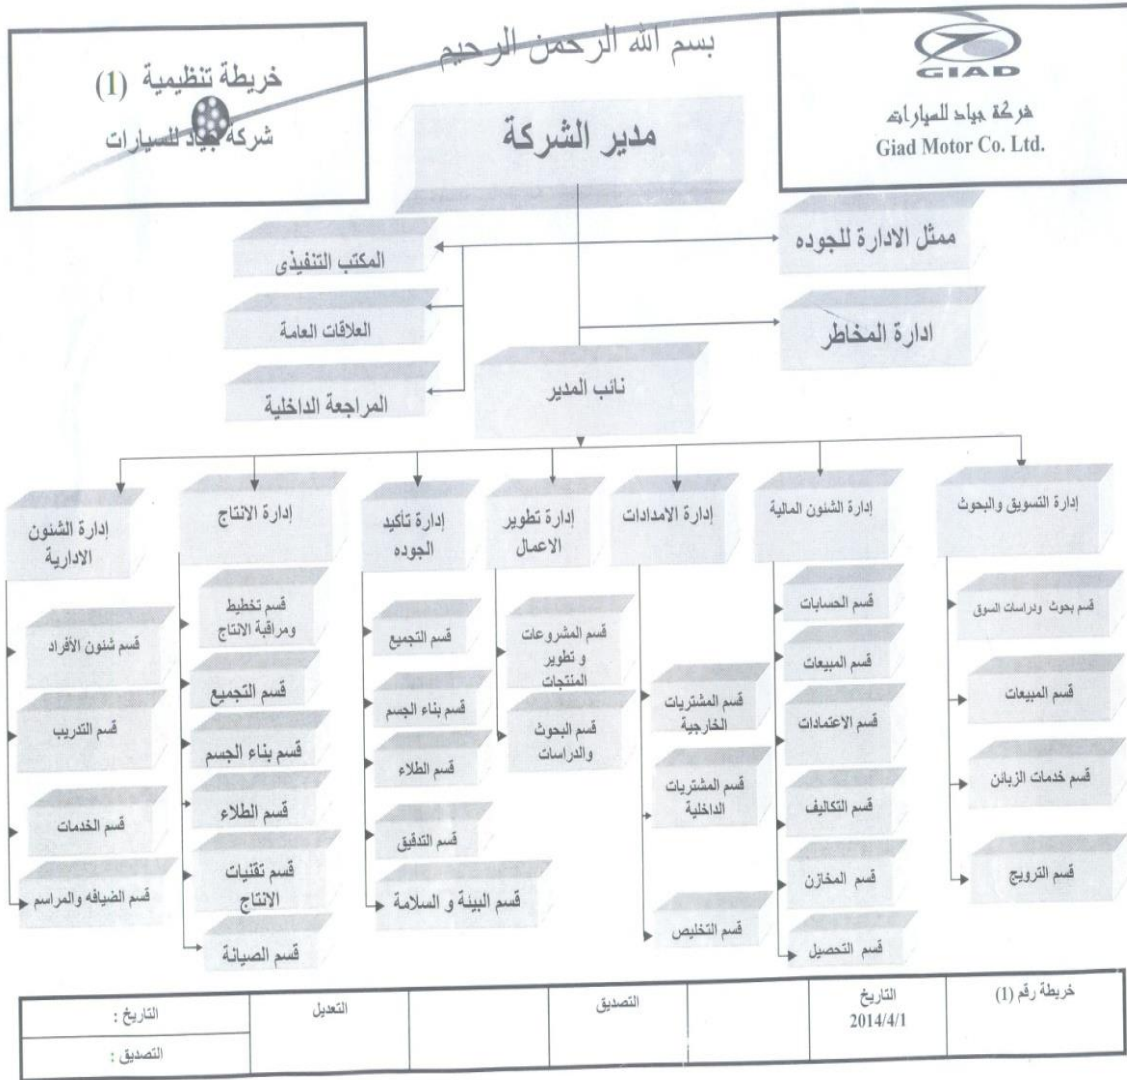 بسم الله الرحمن الرحيم
GIAD
شركة جياد للسيارات
Giad Motor Co. Ltd.
خريطة تنظيمية (1)
شركة جياد للسيارات
مدير الشركة
ممثل الادارة للجوده
المكتب التنفيذى
العلاقات العامة
ادارة المخاطر
المراجعة الداخلية
نائب المدير
إدارة التسويق والبحوث
قسم بحوث ودراسات السوق
قسم المبيعات
قسم خدمات الزبائن
قسم الترويج
إدارة الشئون المالية
قسم الحسابات
قسم المبيعات
قسم الاعتمادات
قسم التكاليف
قسم المخازن
قسم التحصيل
إدارة الامدادات
قسم المشتريات
الخارجية
قسم المشتريات
الداخلية
قسم التخليص
إدارة تطوير
الاعمال
قسم المشروعات
و تطوير
المنتجات
قسم البحوث
والدراسات
إدارة تأكيد
الجوده
قسم التجميع
قسم بناء الجسم
قسم الطلاء
قسم التدقيق
قسم البيئة و السلامة
إدارة الانتاج
قسم تخطيط
ومراقبة الانتاج
قسم التجميع
قسم بناء الجسم
قسم الطلاء
قسم تقنيات
الانتاج
قسم الصيانة
إدارة الشئون
الادارية
قسم شئون الأفراد
قسم التدريب
قسم الخدمات
قسم الضيافه والمراسم
خريطة رقم (1)
التاريخ
2014/4/1
التصديق
التعديل
التاريخ :
التصديق :